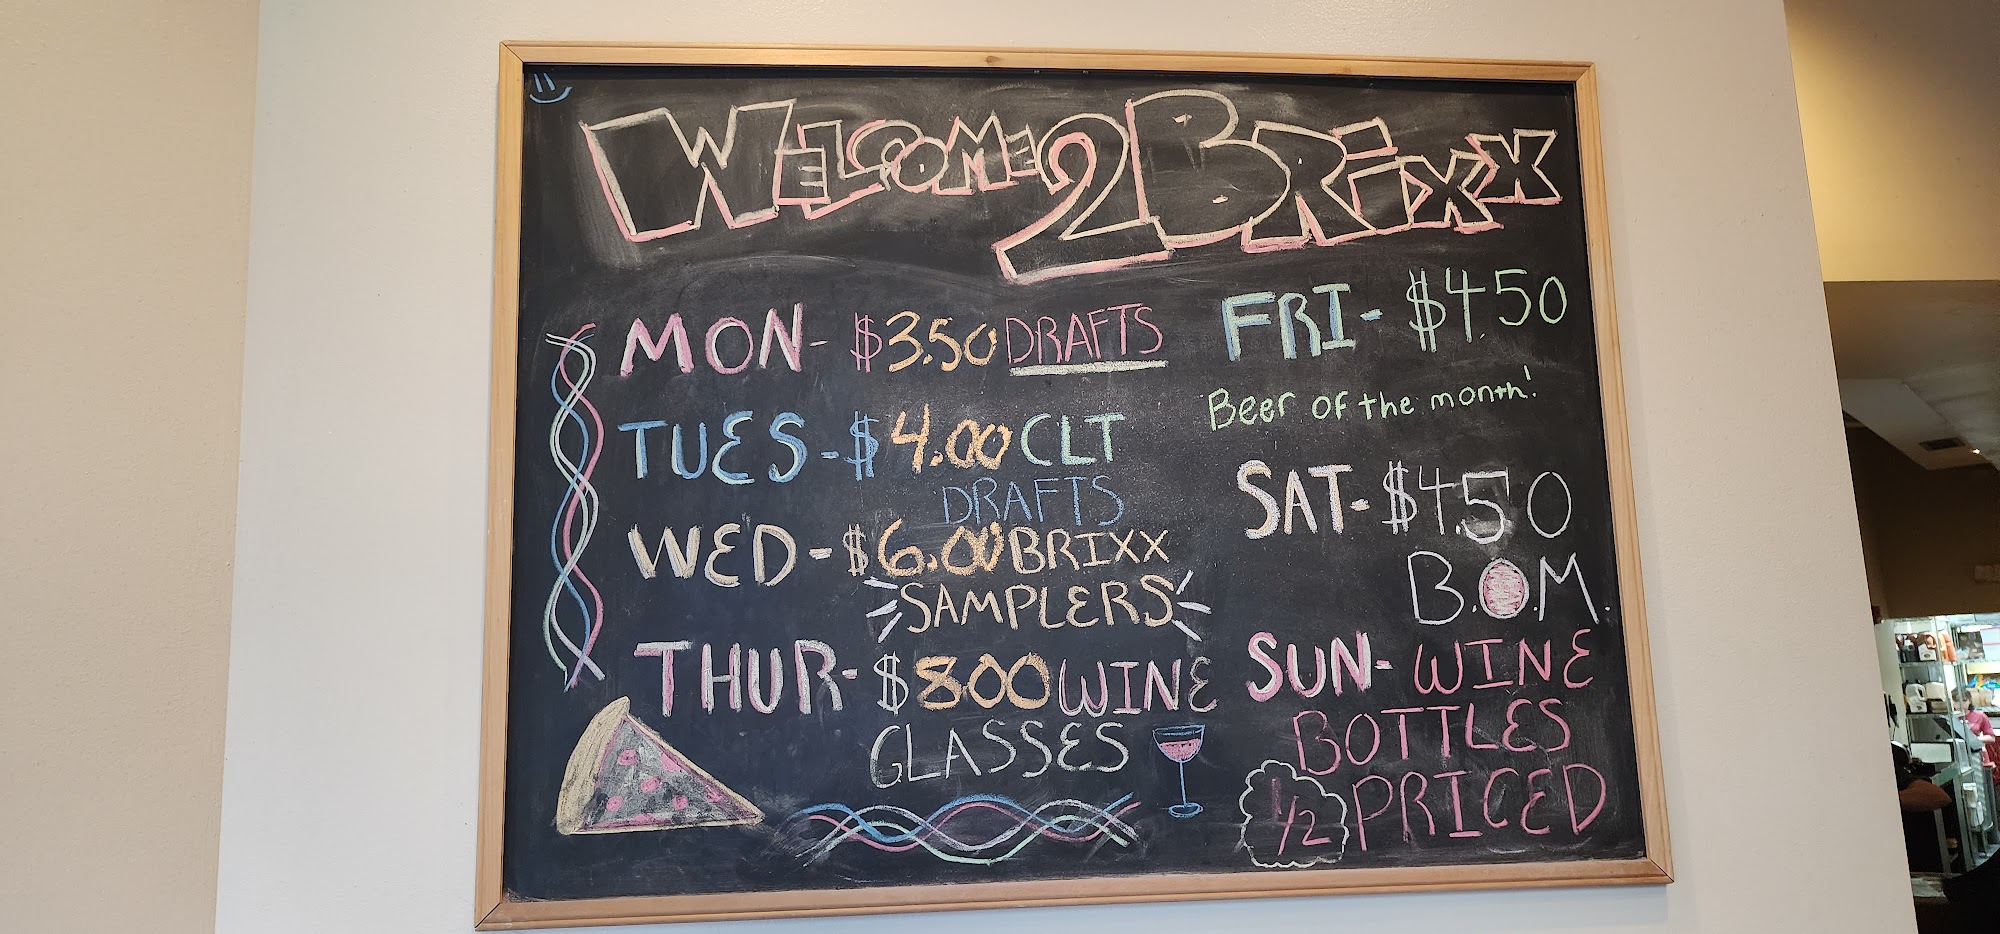 WELCOME 2 BRIXX
MON- $3.50 DRAFTS
TUES-$4.00 CLT
DRAFTS
WED-$6.00 BRIXX
SAMPLERS
THUR-$8.00 WINE
GLASSES
FRI- $4.50
Beer of the month!
SAT-$4.50
B.O.M.
SUN- WINE
BOTTLES
1/2 PRICED